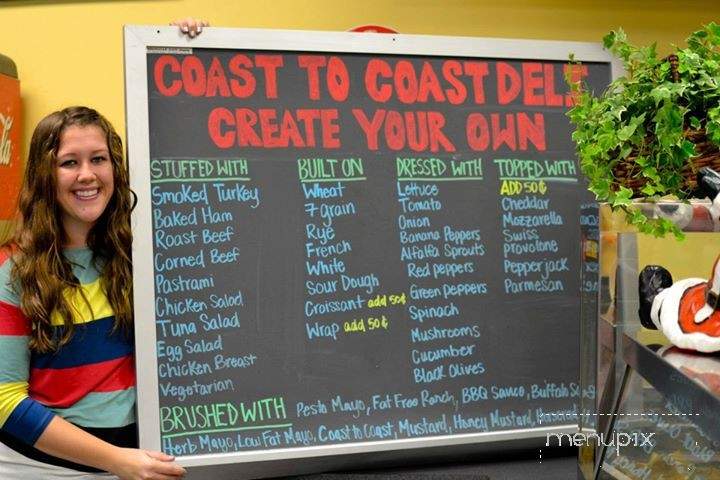 COAST TO COAST DELI
CREATE YOUR OWN
STUFFED WITH
Smoked Turkey
Baked Ham
Roast Beef
Corned Beef
Pastrami
Chicken Salad
Tuna Salad
Egg Salad
Chicken Breast
Vegetarian
BUILT ON
Wheat
7 grain
Rye
French
White
Sour Dough
Croissant add 50¢
Wrap add 50¢
DRESSED WITH
Lettuce
Tomato
Onion
Banana Peppers
Alfalfa Sprouts
Red peppers
Green peppers
Spinach
Mushrooms
Cucumber
Black Olives
TOPPED WITH
ADD 50¢
Cheddar
Mozzarella
Swiss
provolone
Pepperjack
Parmesan
BRUSHED WITH
Pesto Mayo, Fat Free Ranch, BBQ Sauce, Buffalo
Herb Mayo, Low Fat Mayo, Coast to Coast, Mustard, Honey Mustard,
menupix